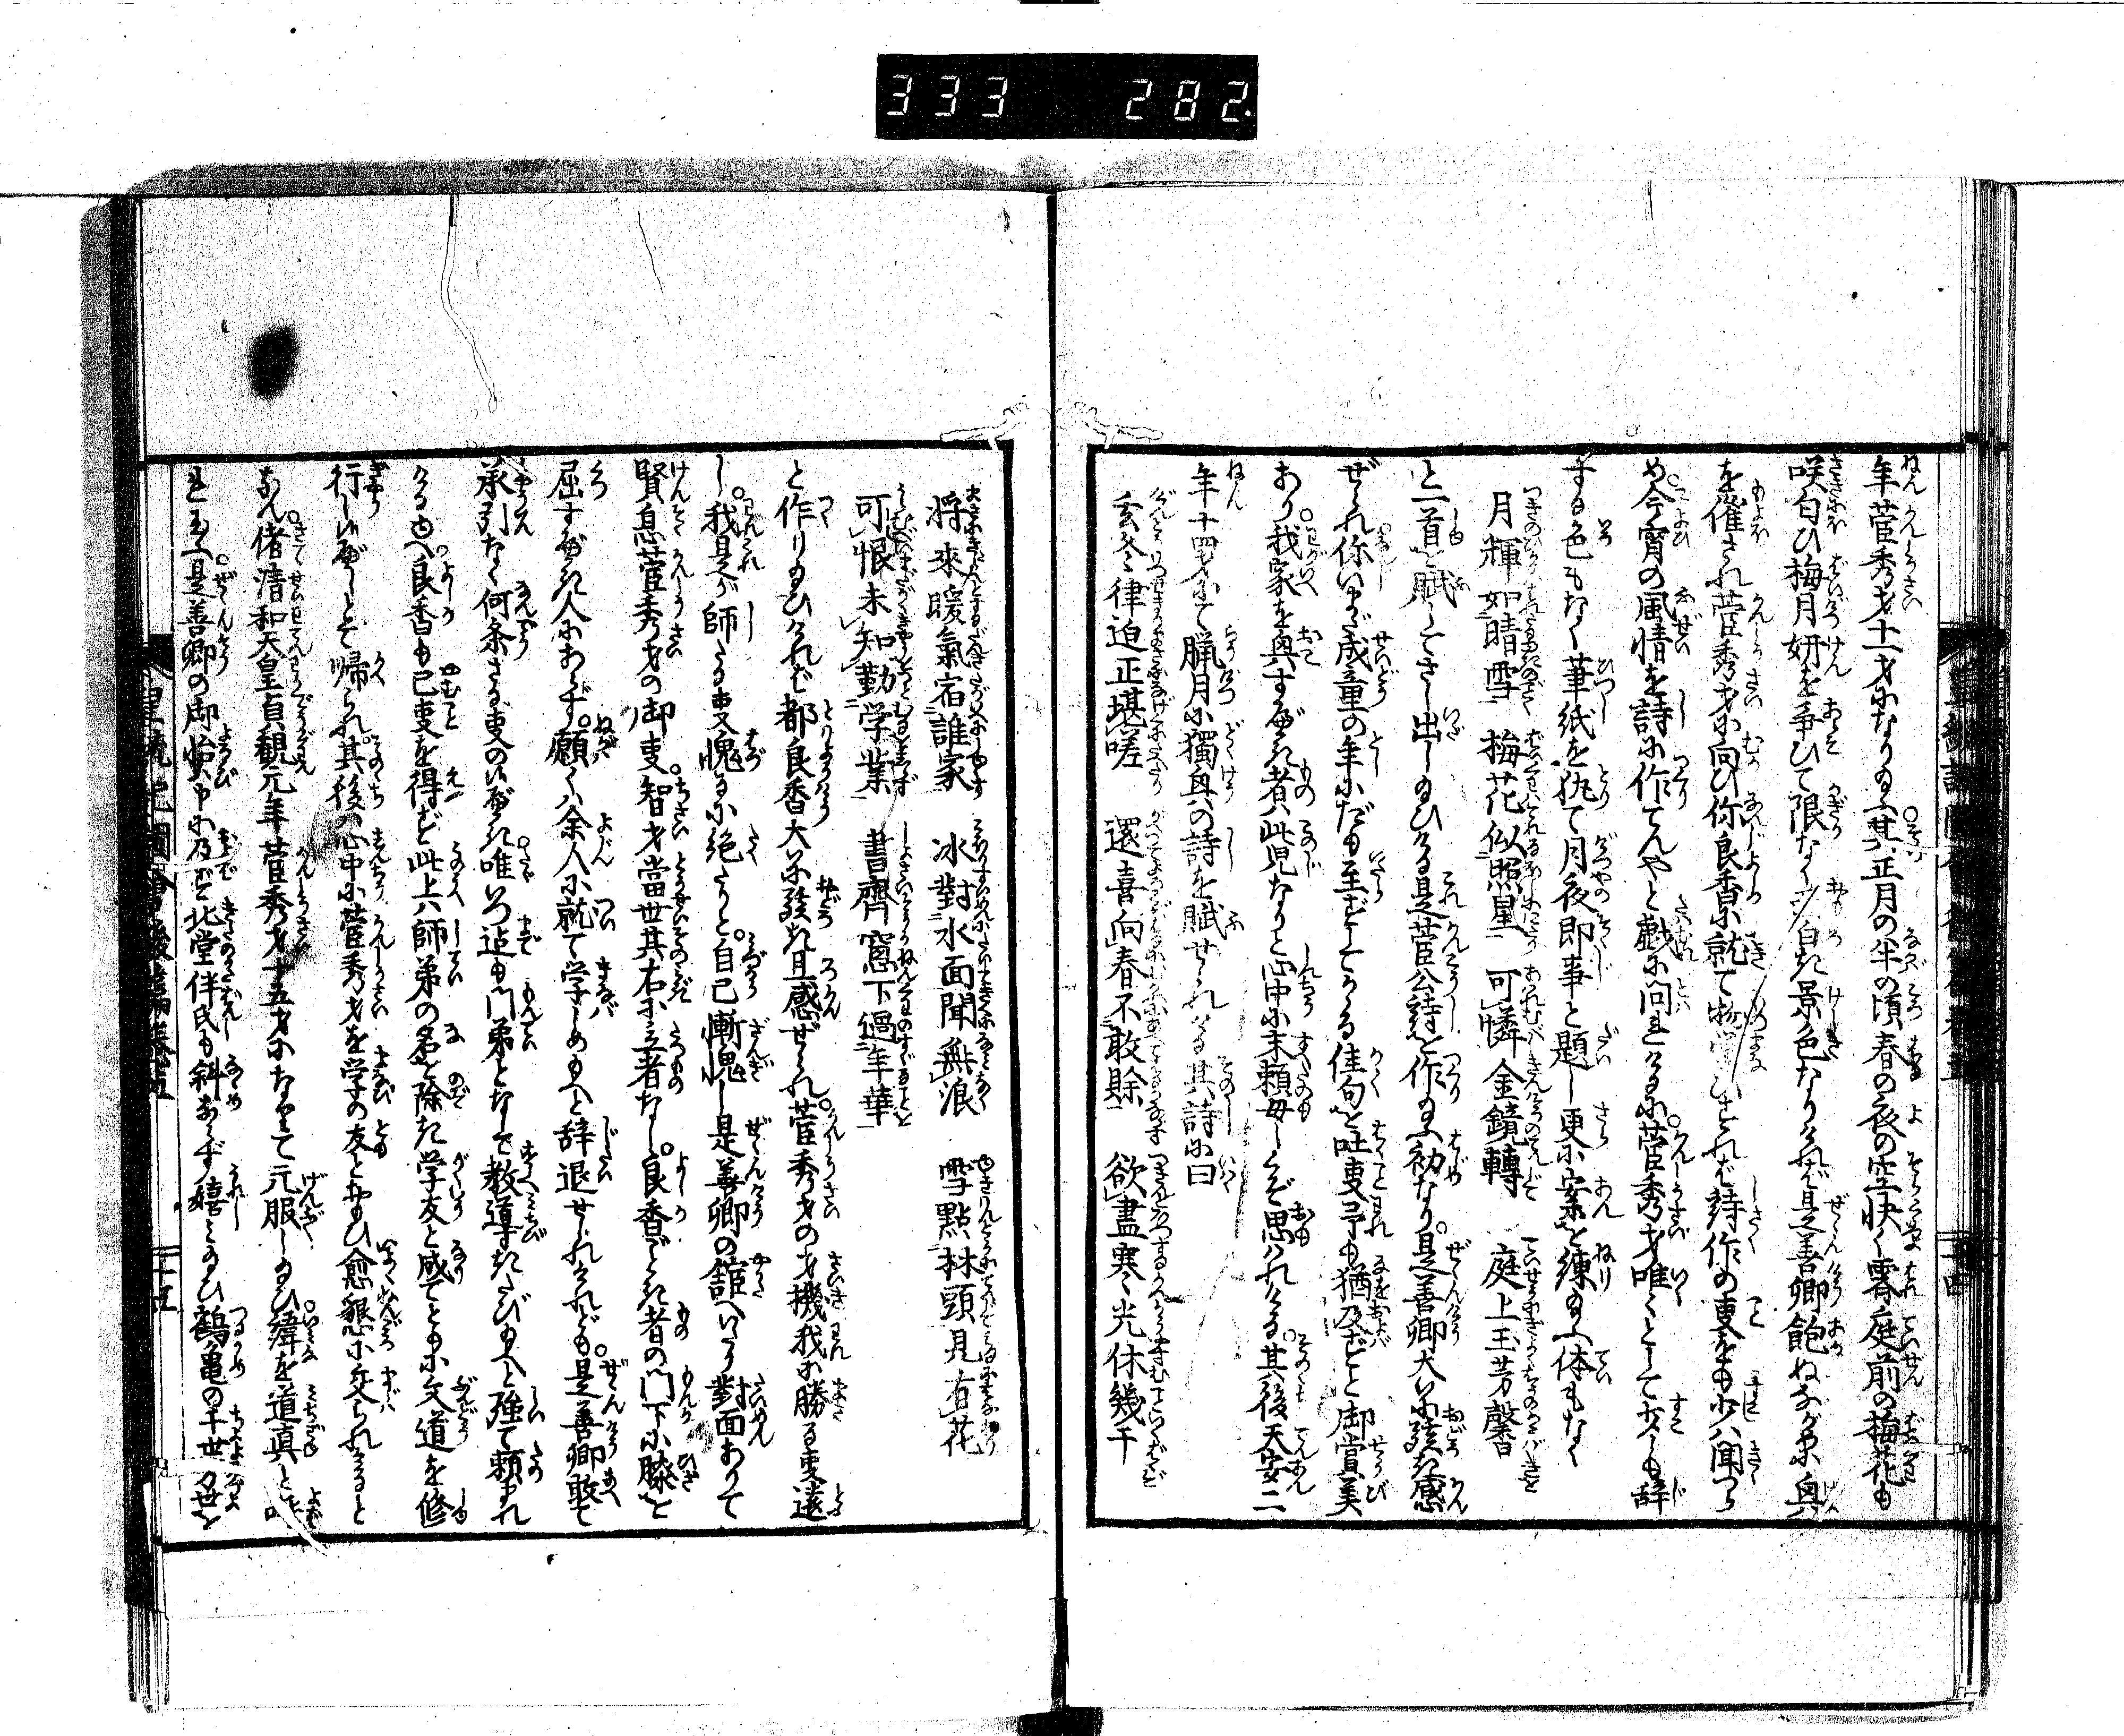 333 282
年菅秀才十一才になり給ふ其正月の半の頃春の夜の空快く霽庭前の梅花も
咲匂ひ梅月妍を争ひて限なく景色なりけれバ是善卿飽ぬながめに興
を催され菅秀才に向ひ你良香に就て物学びすれバ詩作の事をも少ハ聞つら
め今宵の風情を詩に作てんやと戯に問れけるに菅秀才唯〻として少しも辞
する色もなく筆紙を執て月夜即事と題し更に案を練給ふ体もなく
月輝如晴雪 梅花似照星 可憐金鏡轉 庭上玉芳馨
と一首を賦してさし出し給ひける是菅公詩を作給ふ初なり是善卿大に駭き感
ぜられ你いまだ成童の年にだも至ずしてかゝる佳句を吐事予も猶及ずと御賞美
あり我家を興すべき者ハ此児なりと心中に末頼母しくぞ思ハれける其後天安二
年十四才にて臘月に獨興の詩を賦せられける其詩に曰
玄冬律迫正堪嗟 還喜向春不敢賖 欲盡寒光休幾千
將來暖氣宿誰家 氷對水面聞無浪 雪點林頭見有花
可恨未知勤学業 書齊窓下過年華
と作り給ひけれバ都良香大に駭き且感ぜられ菅秀才の才機我に勝る事遠
し我是が師たる事愧るに絶たりと自己慚愧し是善卿の舘へいたり對面ありて
賢息菅秀才の御事智才當世其右に立者なし良香ごとき者の門下に膝を
屈すべき人にあらず願くハ余人に就て学しめ給へと辞退せられけれども是善卿敢て
承引なく何条さる事の候べき唯いつ迄も門弟となして教導きたび給へと強て頼まれ
ける由へ良香も已事を得ず此上ハ師弟の名を除き学友と成てともに文道を修
行し候べしとて帰られ其後ハ心中に菅秀才を学の友と敬ひ愈懇に交られけると
なん偖清和天皇貞觀元年菅秀才十五才になりて元服し給ひ諱を道真と
是善卿の御怡申に及ず北堂伴氏も斜ならず嬉み給ひ鶴亀の千世万世を